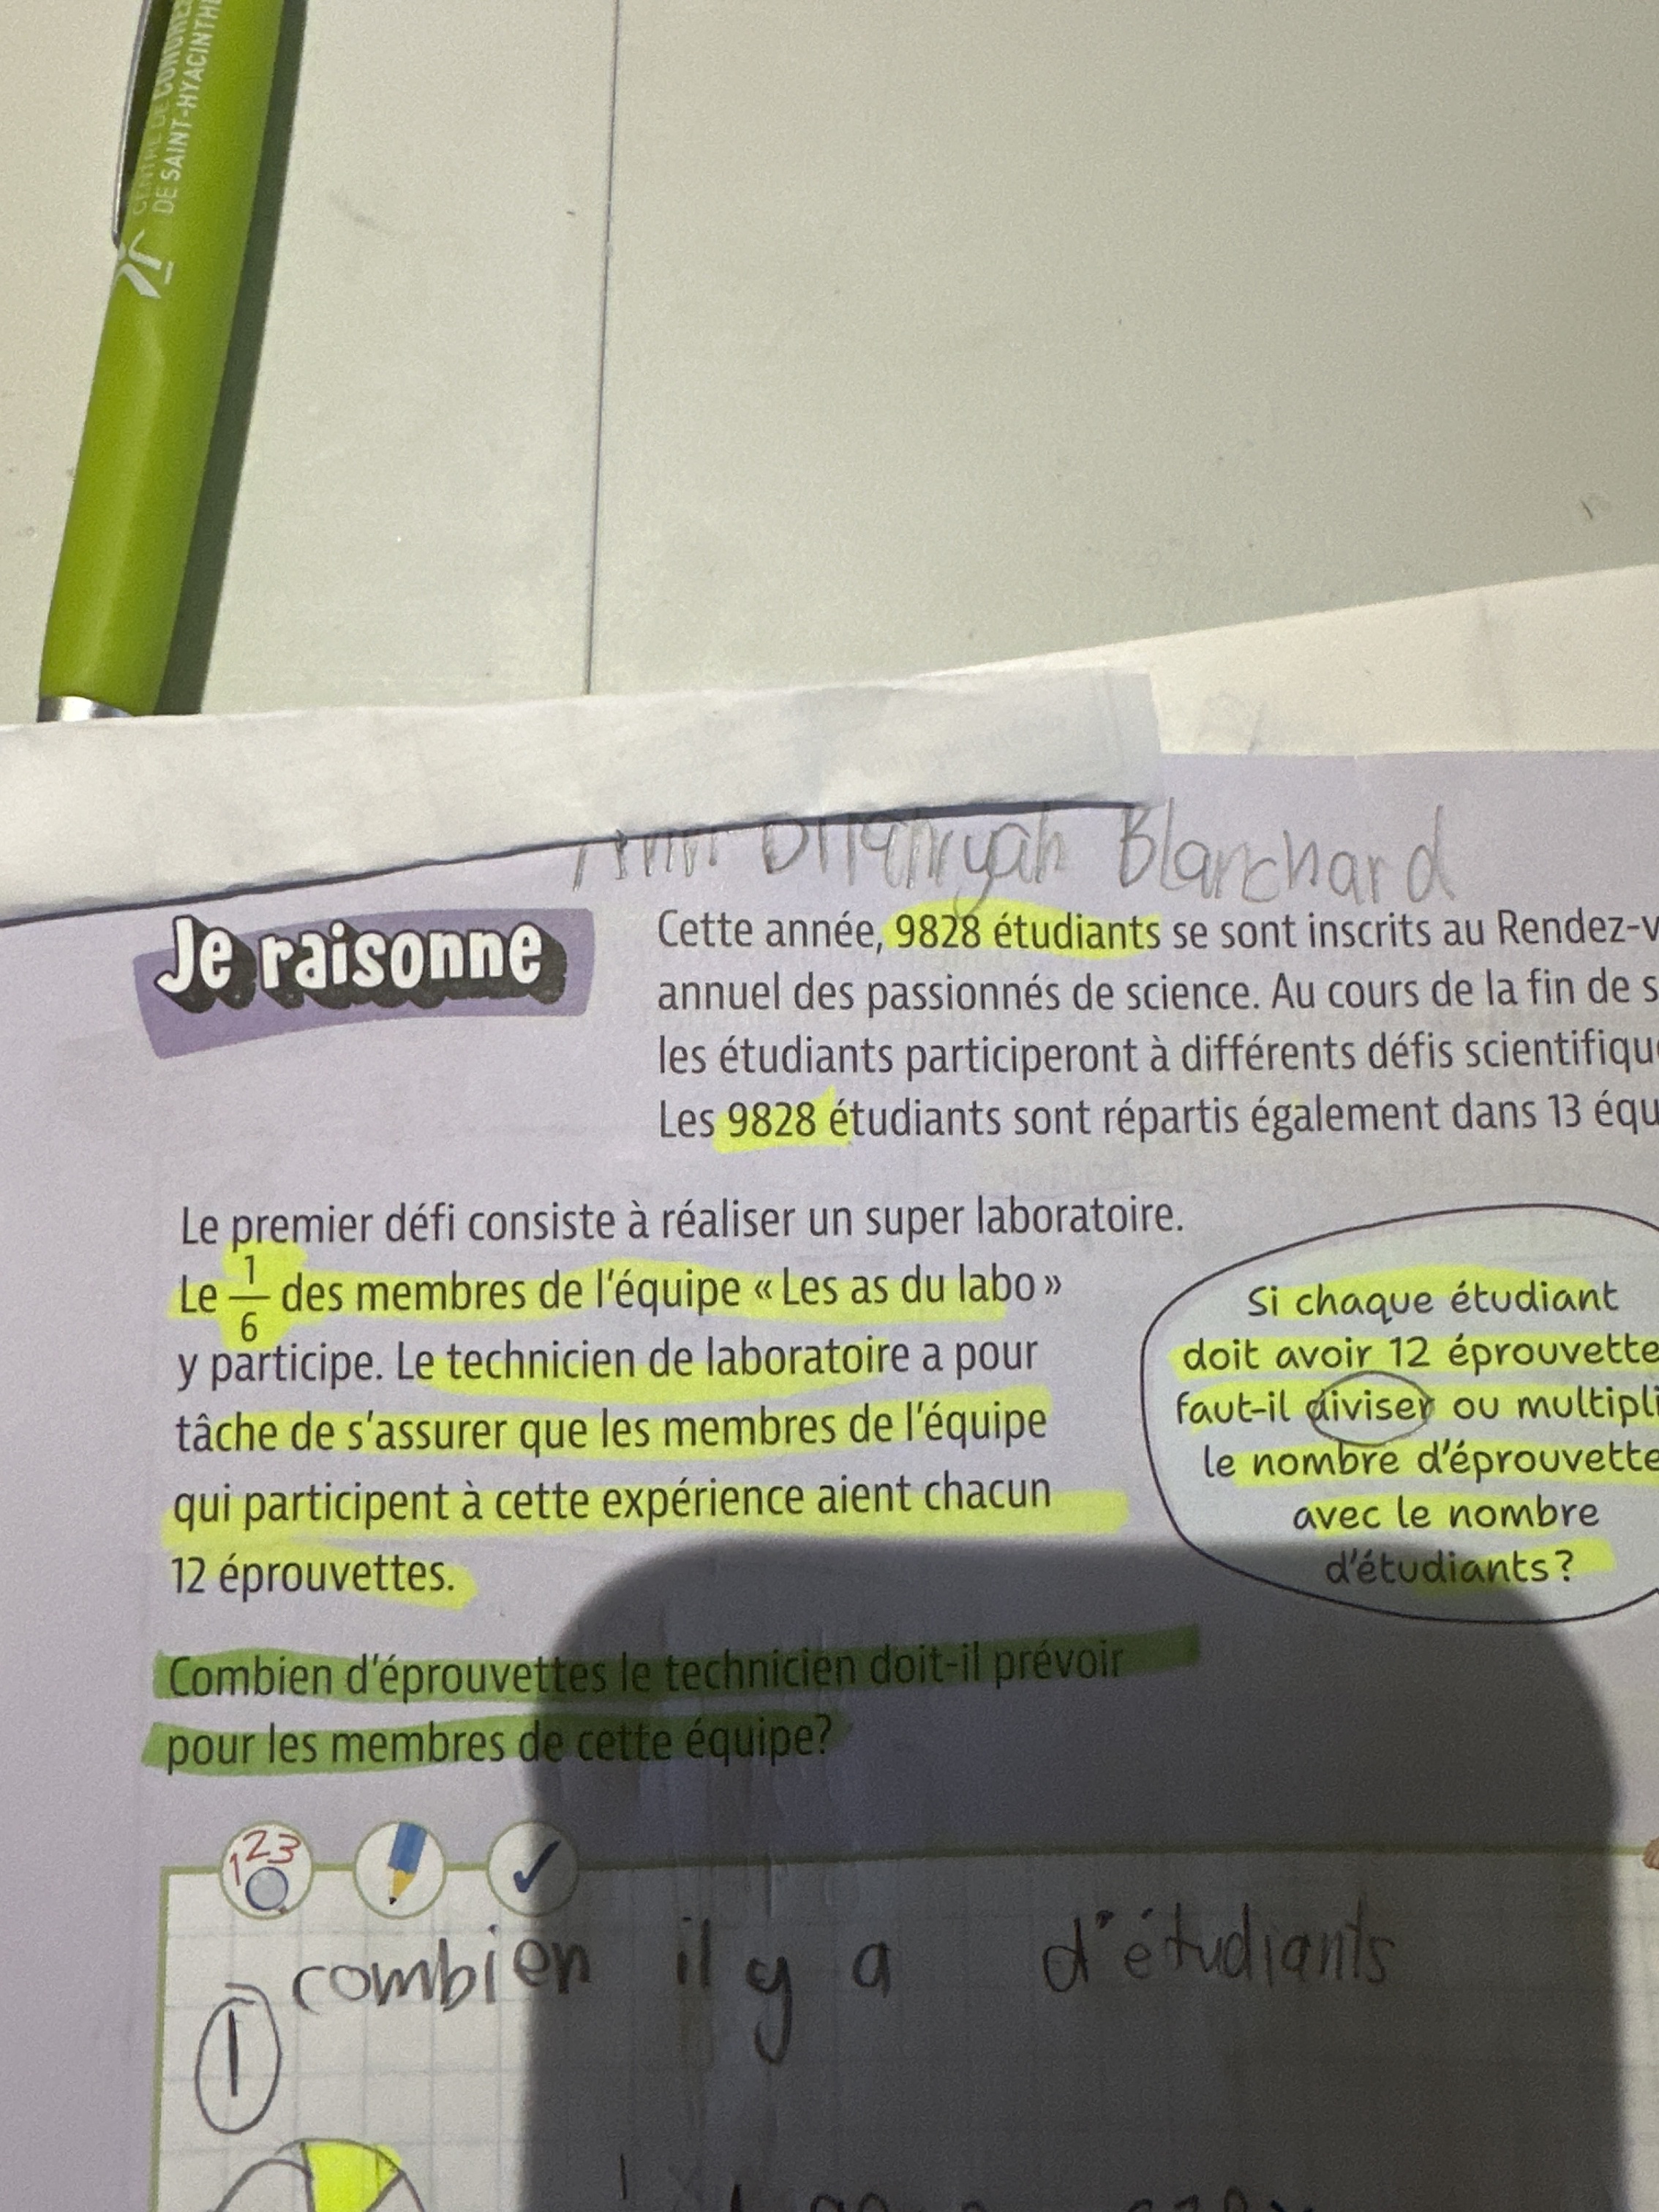 CENTRE DE CONGRÈS
DE SAINT-HYACINTHE
Blanchard
Je raisonne
Cette année, 9828 étudiants se sont inscrits au Rendez-v
annuel des passionnés de science. Au cours de la fin de s
les étudiants participeront à différents défis scientifiqu
Les 9828 étudiants sont répartis également dans 13 équ
Le premier défi consiste à réaliser un super laboratoire.
Le 1/6 des membres de l'équipe « Les as du labo »
y participe. Le technicien de laboratoire a pour
tâche de s'assurer que les membres de l'équipe
qui participent à cette expérience aient chacun
12 éprouvettes.
Si chaque étudiant
doit avoir 12 éprouvette
faut-il diviser ou multipli
le nombre d'éprouvette
avec le nombre
d'étudiants?
Combien d'éprouvettes le technicien doit-il prévoir
pour les membres de cette équipe?
123
combien il y a d'étudiants
1